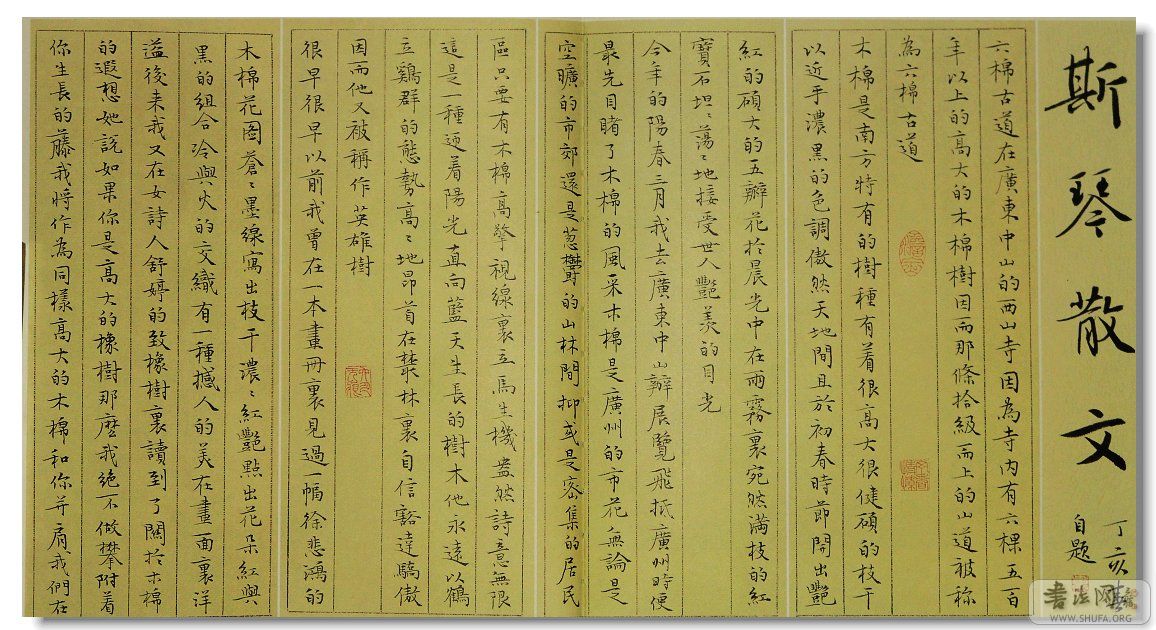 斯琴散文
丁亥春
自題
六棉古道在廣東中山的西山寺因為寺内有六棵五百
年以上的高大的木棉樹因而那條拾級而上的山道被称
為六棉古道
木棉是南方特有的樹種有着很高大很健碩的枝干
以近乎濃黑的色調傲然天地間且於初春時節開出艷
紅的碩大的五瓣花於晨光中在雨霧裏宛然满枝的紅
寶石坦〻蕩〻地接受世人艷羡的目光
今年的陽春三月我去廣東中山辦展覽飛抵廣州時便
最先目睹了木棉的風采木棉是廣州的市花無論是
空曠的市郊還是葱鬱的山林間抑或是密集的居民
區只要有木棉高擎視線裏立馬生機盎然詩意無限
這是一種迎着陽光直向藍天生長的樹木他永遠以鶴
立鷄群的態勢高〻地昂首在叢林裏自信豁達驕傲
因而他又被稱作英雄樹
很早很早以前我曾在一本畫册裏見過一幅徐悲鴻的
木棉花图蒼〻墨線寫出枝干濃〻紅艷點出花朵紅與
黑的組合冷與火的交織有一種撼人的美在畫面裏洋
溢後来我又在女詩人舒婷的致橡樹裏讀到了關於木棉
的遐想她說如果你是高大的橡樹那麽我絶不做攀附着
你生長的藤我將作為同樣高大的木棉和你并肩我們在
書法网
WWW.SHUFA.ORG